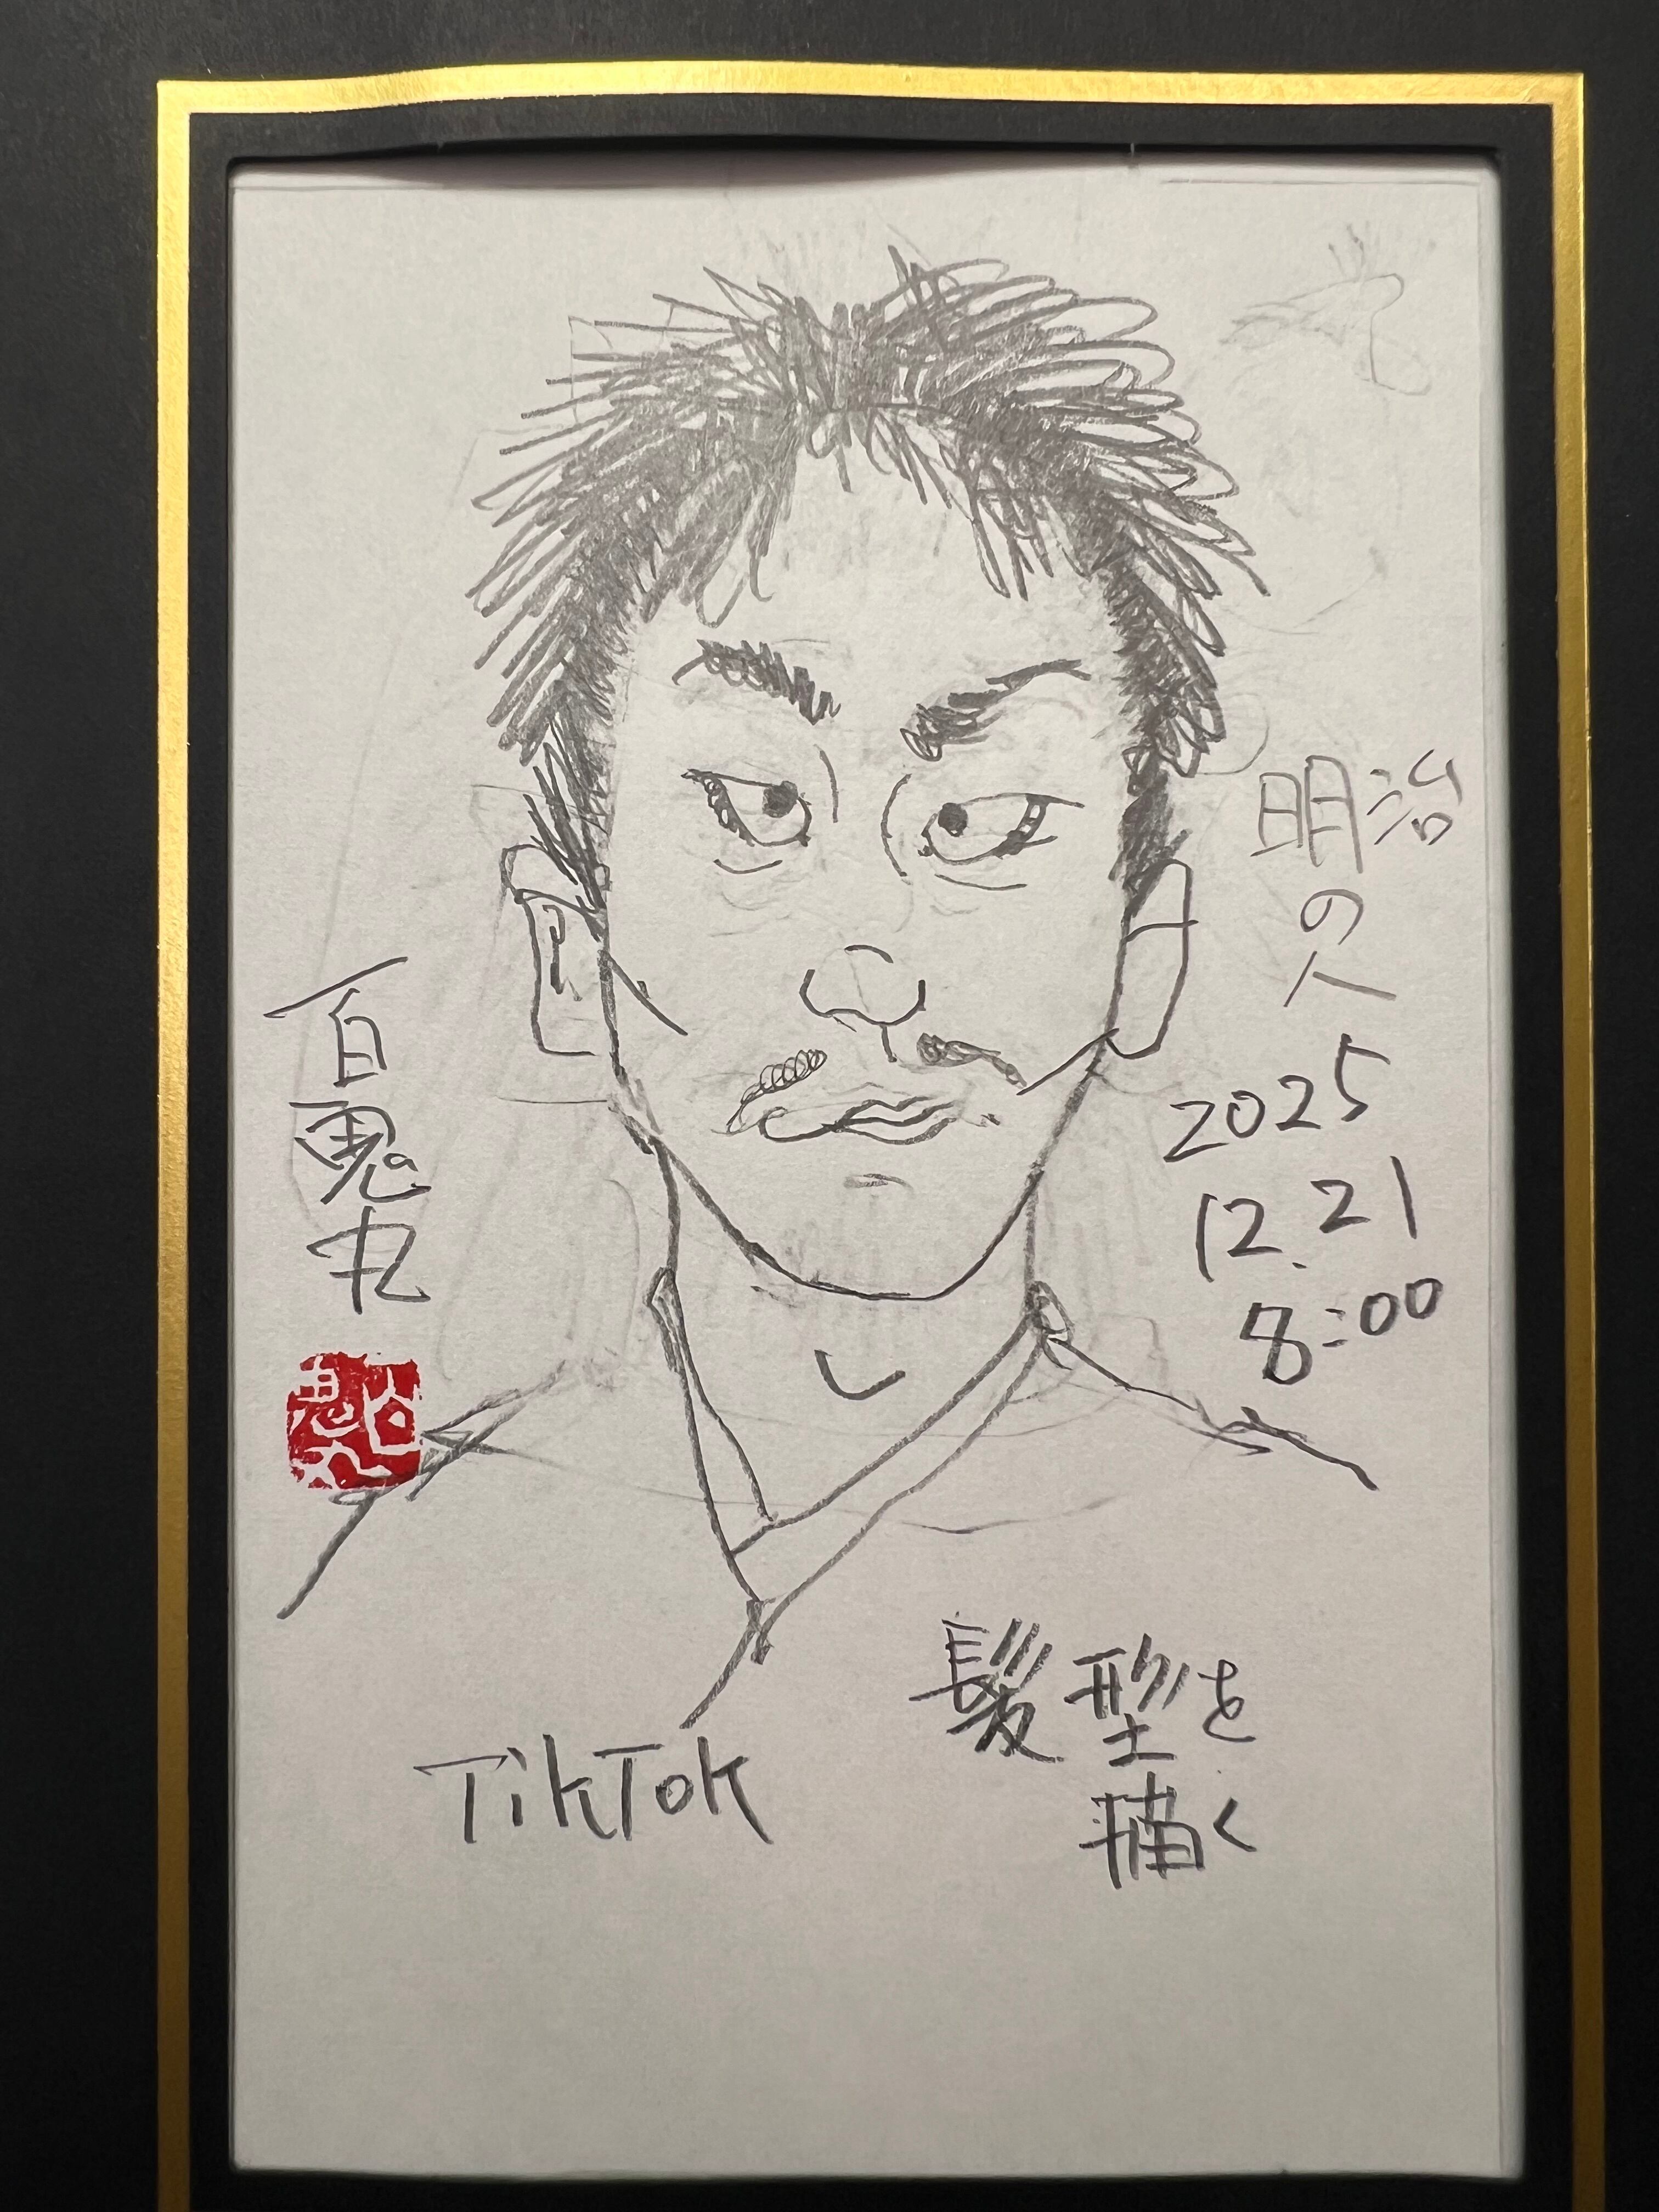 明治
の
人
2025
12.21
8:00
百鬼丸
TikTok
髪型を
描く